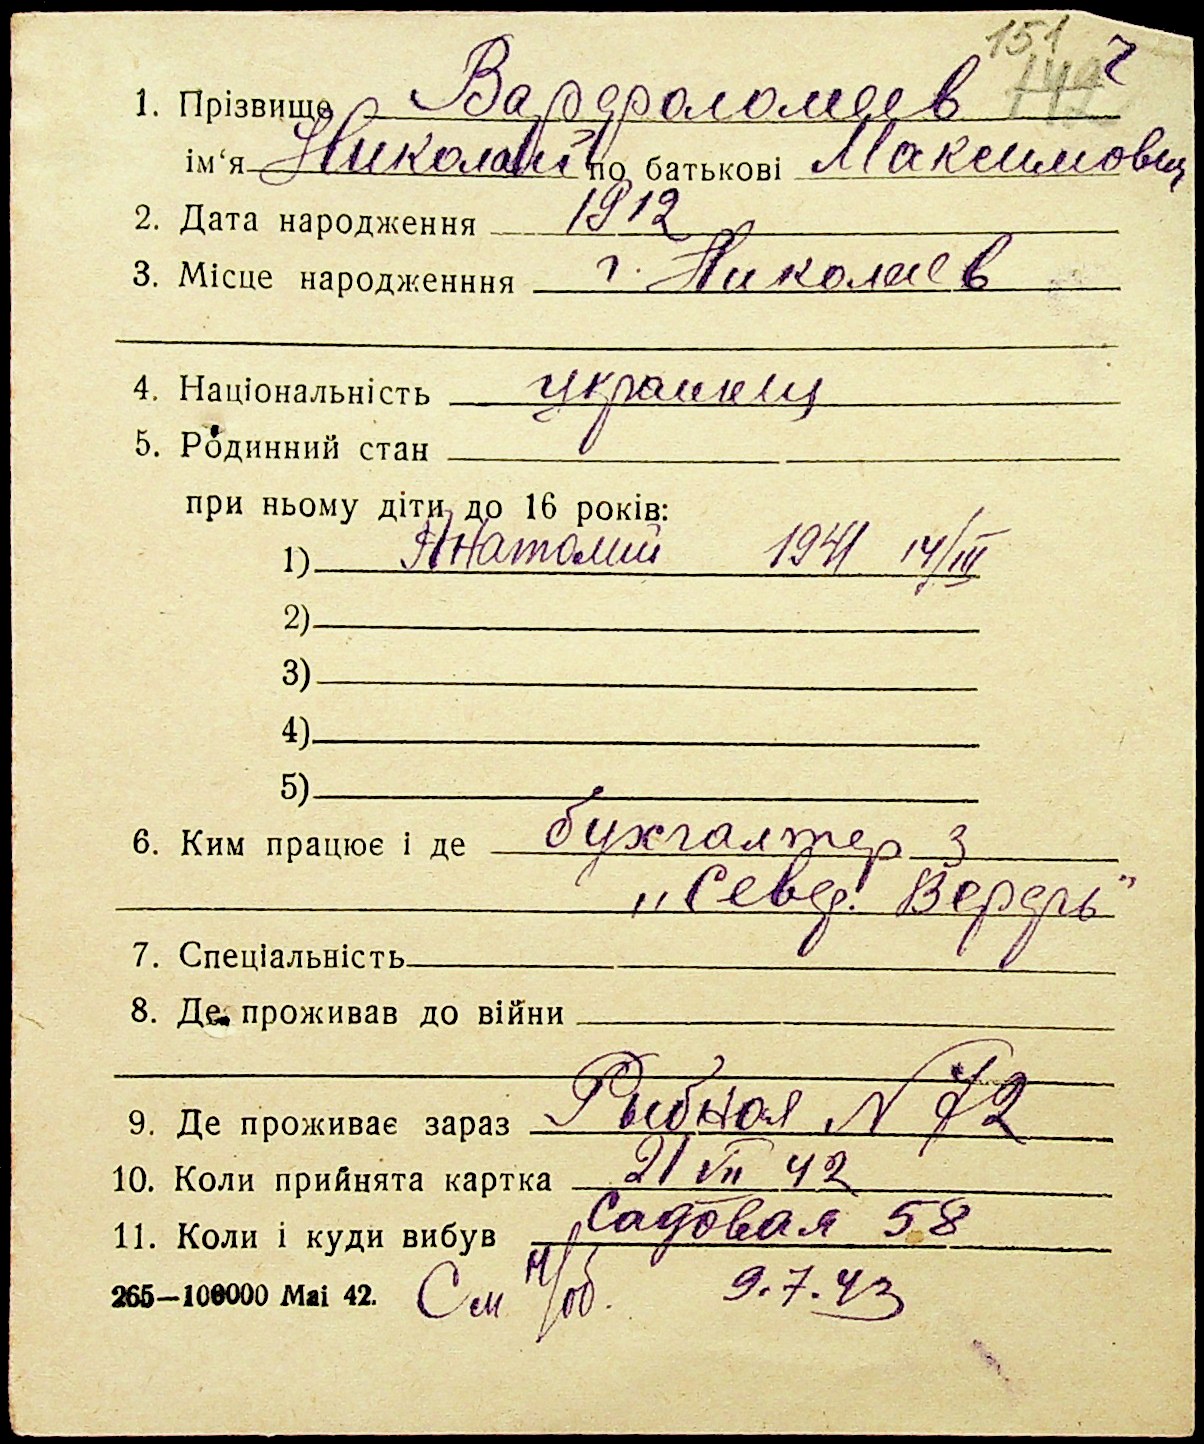 151
142 2
1. Прізвище Варфоломеев
ім‘я Николай по батькові Максимович
2. Дата народження 1912
3. Місце народженння г. Николаев
4. Національність украинец
5. Родинний стан
при ньому діти до 16 років:
1) Анатолий 1941 14/III
2)
3)
4)
5)
6. Ким працює і де бухгалтер з
„Севд. Верфь”
7. Спеціальність
8. Де проживав до війни
9. Де проживає зараз Рыбная N 72
10. Коли прийнята картка 21 VII 42
11. Коли і куди вибув Садовая 58
265—100000 Mai 42. См н/об. 9.7.43